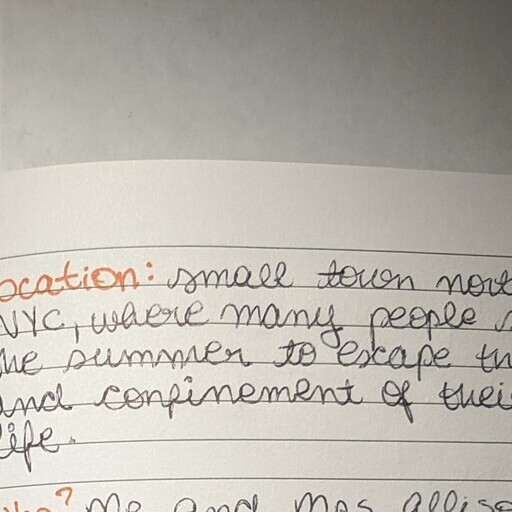 ocation: small town nort
NYC, where many people s
he summer to escape th
and confinement of thei
life.
me and mas alliso